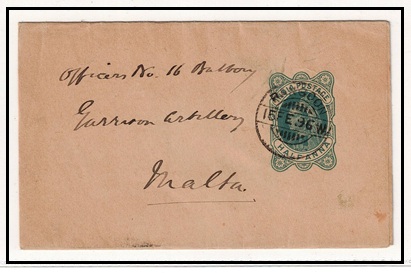 Officers No. 16 Battery
Garrison Artillery
Malta.
POSTAGE
HALF ANNA
16 FE.96.W